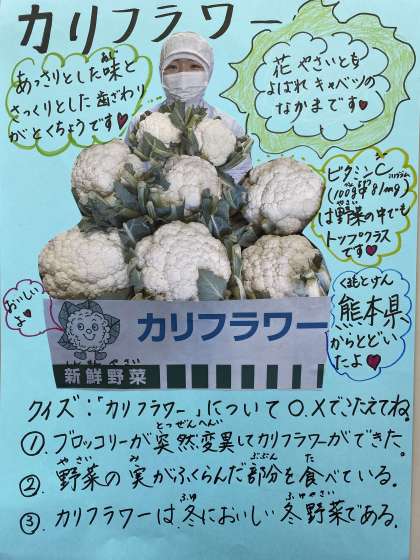 カリフラワー
あっさりとした味と
あじ
さっくりとした歯ざわり
がとくちょうです♥
花やさいとも
よばれ キャベツの
なかまです♥
ビタミンC
(100g中81mg)
は野菜の中でも
やさい
トップクラス
です♥
おいしい
よ♥
くまもとけん
熊本県
からとどい
たよ♥
カリフラワー
新鮮野菜
クイズ:「カリフラワー」について○.×でこたえてね。
とつぜんへんい
①.ブロッコリーが突然変異してカリフラワーができた。
やさい み ぶぶん た
②.野菜の実がふくらんだ部分を食べている。
ふゆ ふゆやさい
③.カリフラワーは冬においしい冬野菜である。